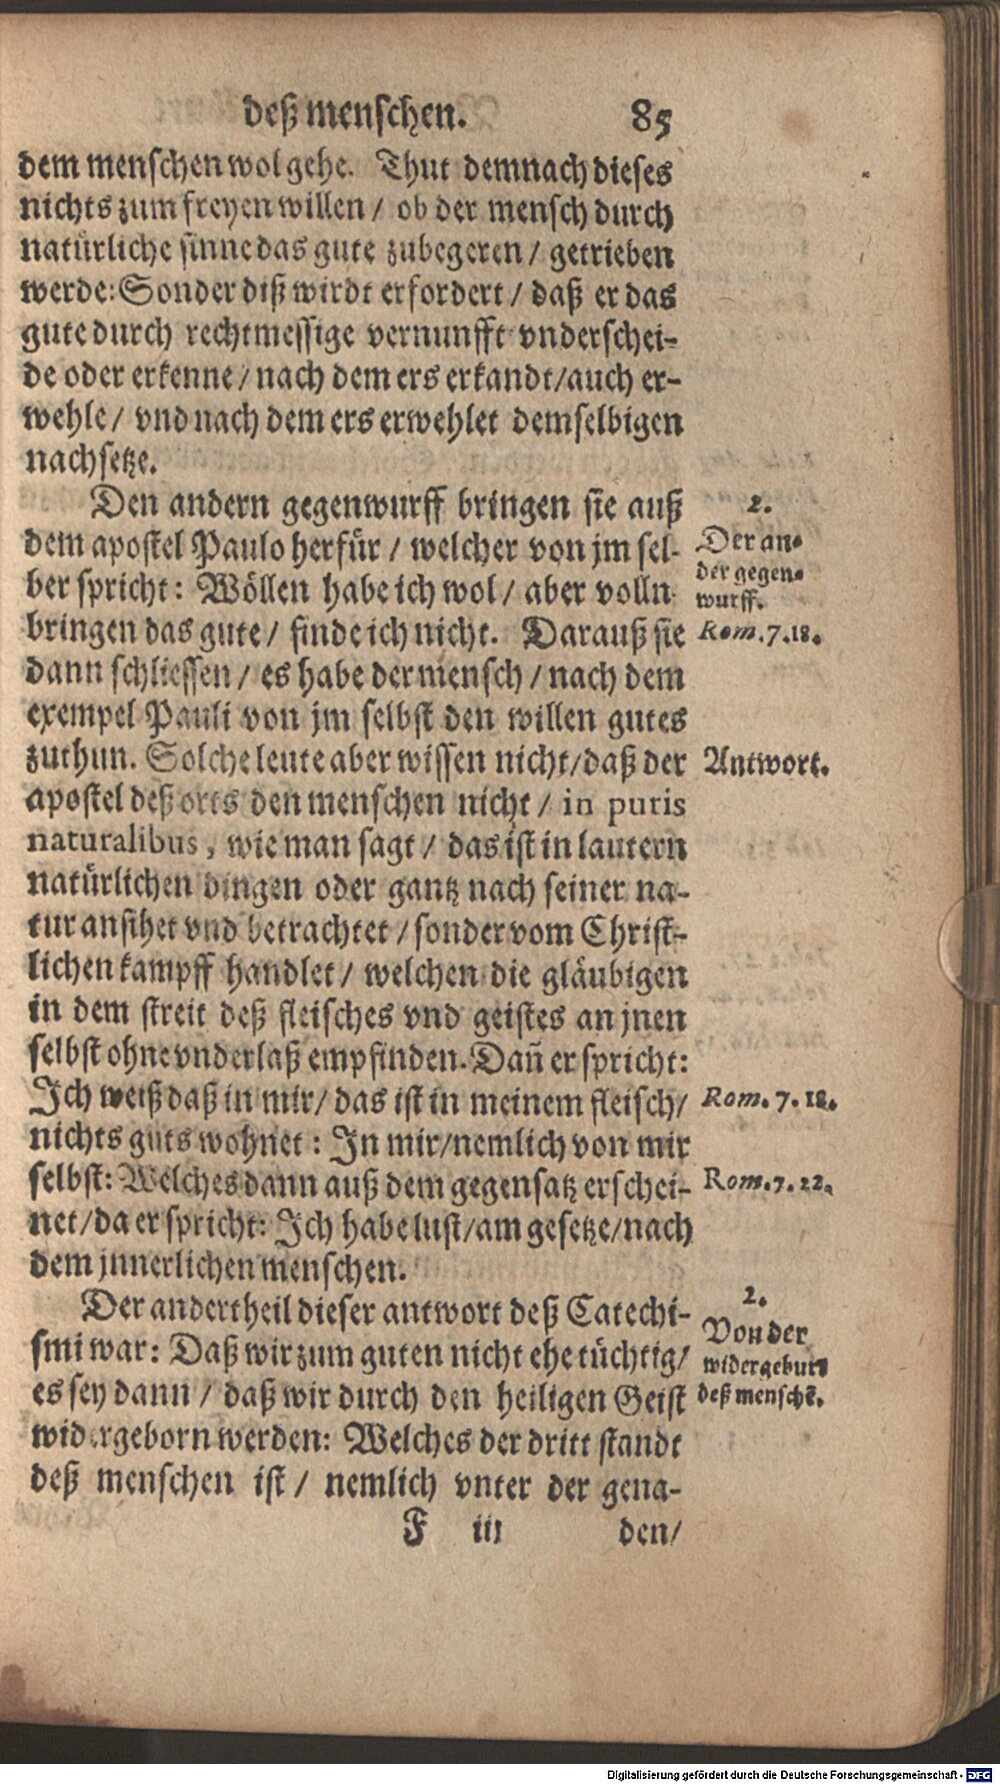 deß menschen. 85
dem menschen wol gehe. Thut demnach dieses
nichts zum freyen willen / ob der mensch durch
natürliche sinne das gute zubegeren / getrieben
werde: Sonder diß wirdt erfordert / daß er das
gute durch rechtmessige vernunfft vnderschei-
de oder erkenne / nach dem ers erkandt / auch er-
wehle / vnd nach dem ers erwehlet demselbigen
nachsetze.
Den andern gegenwurff bringen sie auß
2.
dem apostel Paulo herfür / welcher von jm sel-
Der an-
ber spricht: Wöllen habe ich wol / aber volln
der gegen-
wurff.
bringen das gute / finde ich nicht. Darauß sie
Rom. 7. 18.
dann schliessen / es habe der mensch / nach dem
exempel Pauli von jm selbst den willen gutes
zuthun. Solche leute aber wissen nicht / daß der
Antwort.
apostel deß orts den menschen nicht / in puris
naturalibus, wie man sagt / das ist in lautern
natürlichen dingen oder gantz nach seiner na-
tur ansihet vnd betrachtet / sonder vom Christ-
lichen kampff handlet / welchen die gläubigen
in dem streit deß fleisches vnd geistes an jnen
selbst ohne vnderlaß empfinden. Dañ er spricht:
Ich weiß daß in mir / das ist in meinem fleisch /
Rom. 7. 18.
nichts guts wohnet: In mir / nemlich von mir
selbst: Welches dann auß dem gegensatz erschei-
Rom. 7. 22.
net / da er spricht: Ich habe lust / am gesetze / nach
dem jnnerlichen menschen.
Der andertheil dieser antwort deß Catechi-
2.
smi war: Daß wir zum guten nicht ehe tüchtig /
Von der
widergeburt
es sey dann / daß wir durch den heiligen Geist
deß menschẽ.
widergeborn werden: Welches der dritt standt
deß menschen ist / nemlich vnter der gena-
F iii den /
Digitalisierung gefördert durch die Deutsche Forschungsgemeinschaft - DFG